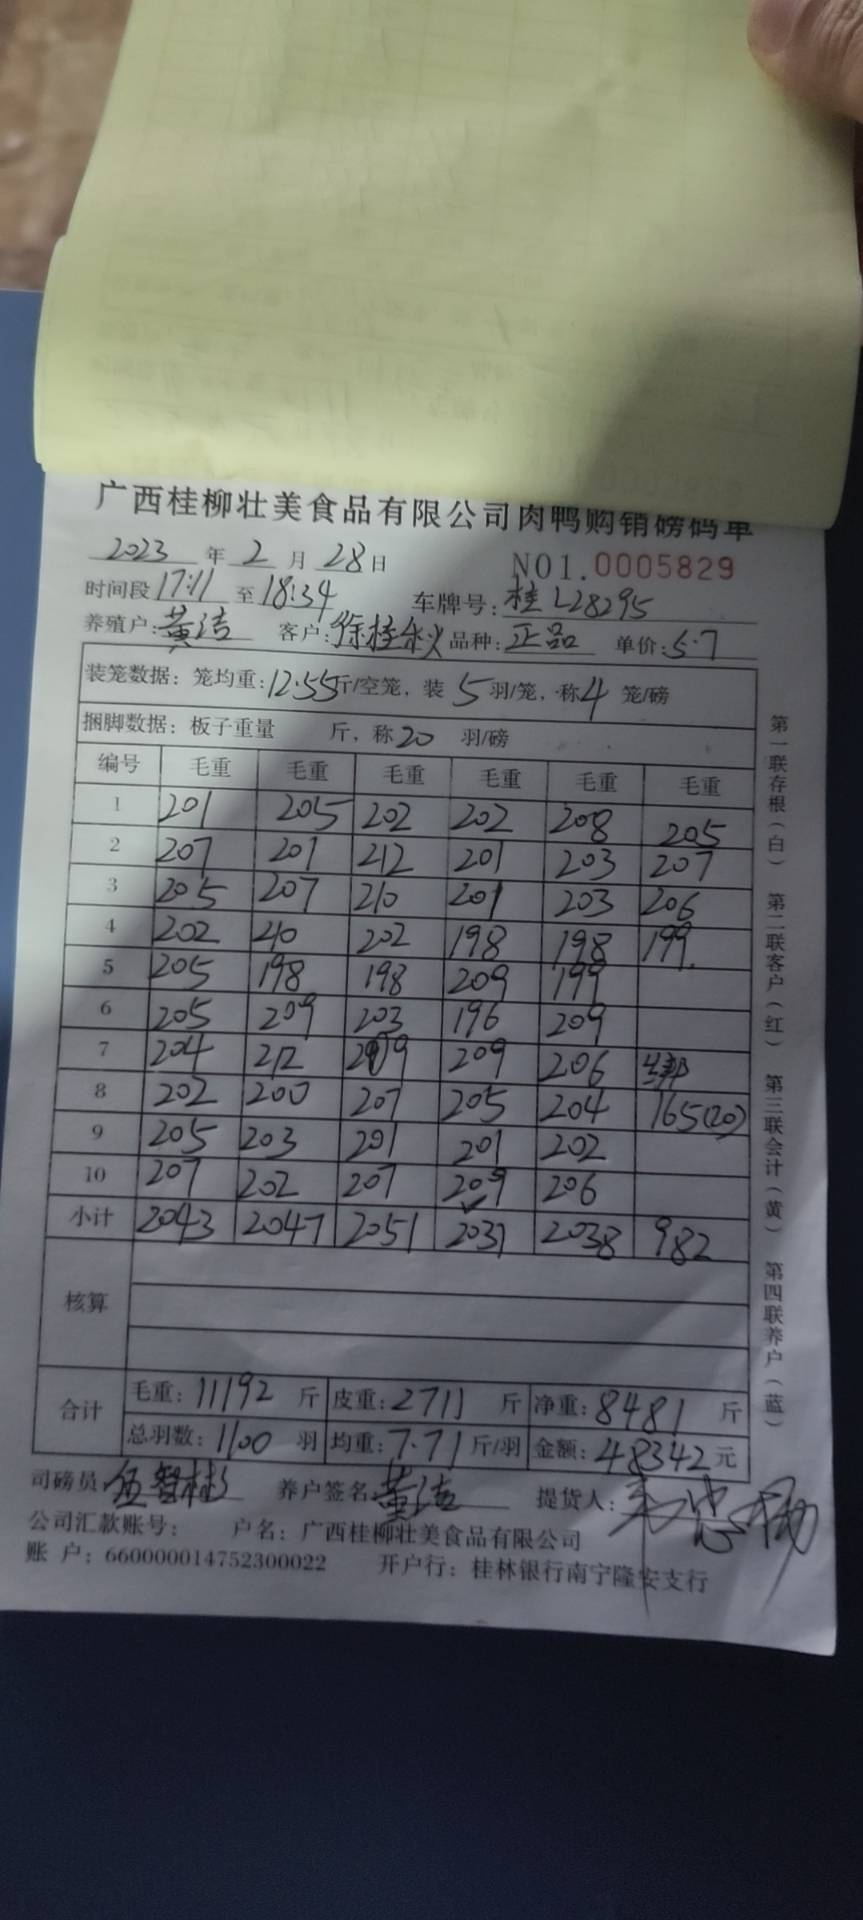 广西桂柳壮美食品有限公司肉鸭购销磅码单
2023 年 2 月 28 日 NO1.0005829
时间段 17:11 至 18:34 车牌号: 桂L28295
养殖户: 黄洁 客户: 徐桂秋 品种: 正品 单价: 5.7
装笼数据: 笼均重: 12.55 斤/空笼, 装 5 羽/笼, 称 4 笼/磅
捆脚数据: 板子重量 斤, 称 20 羽/磅
编号 毛重 毛重 毛重 毛重 毛重 毛重
1 201 205 202 202 208 205
2 207 201 212 201 203 207
3 205 207 210 201 203 206
4 202 210 202 198 198 199
5 205 198 198 209 199
6 205 209 203 196 209
7 204 212 209 209 206
8 202 200 207 205 204 165(20)
9 205 203 201 201 202
10 207 202 207 209 206
小计 2043 2047 2051 2031 2038 982
核算
合计 毛重: 11192 斤 皮重: 2711 斤 净重: 8481 斤
总羽数: 1100 羽 均重: 7.71 斤/羽 金额: 48342 元
司磅员 养户签名 黄洁 提货人:
公司汇款账号: 户名: 广西桂柳壮美食品有限公司
账 户: 660000014752300022 开户行: 桂林银行南宁隆安支行
第一联存根(白) 第二联客户(红) 第三联会计(黄) 第四联养户(蓝)